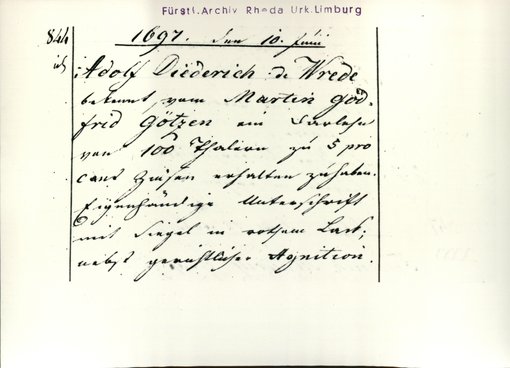 Fürstl. Archiv Rheda Urk. Limburg
844
1697. den 10. Junii
Adolf Diederich de Wrede
bekennt vom Martin Göd-
frid Götzen ein Darlehn
von 100 Thalern zu 5 pro
cent Zinsen erhalten zu haben.
Eigenhändige Unterschrift
mit Siegel in rothem Lack,
nebst gerichtlicher Agnition.